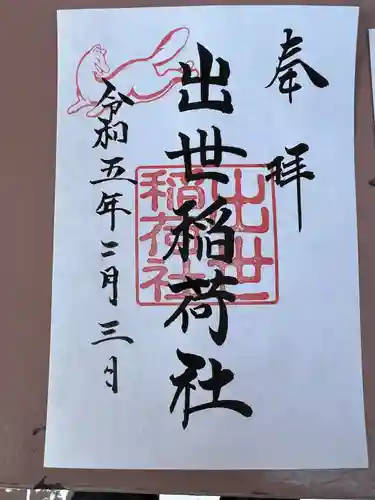 奉拝
出世稲荷社
出世
稲荷社
令和五年二月三日